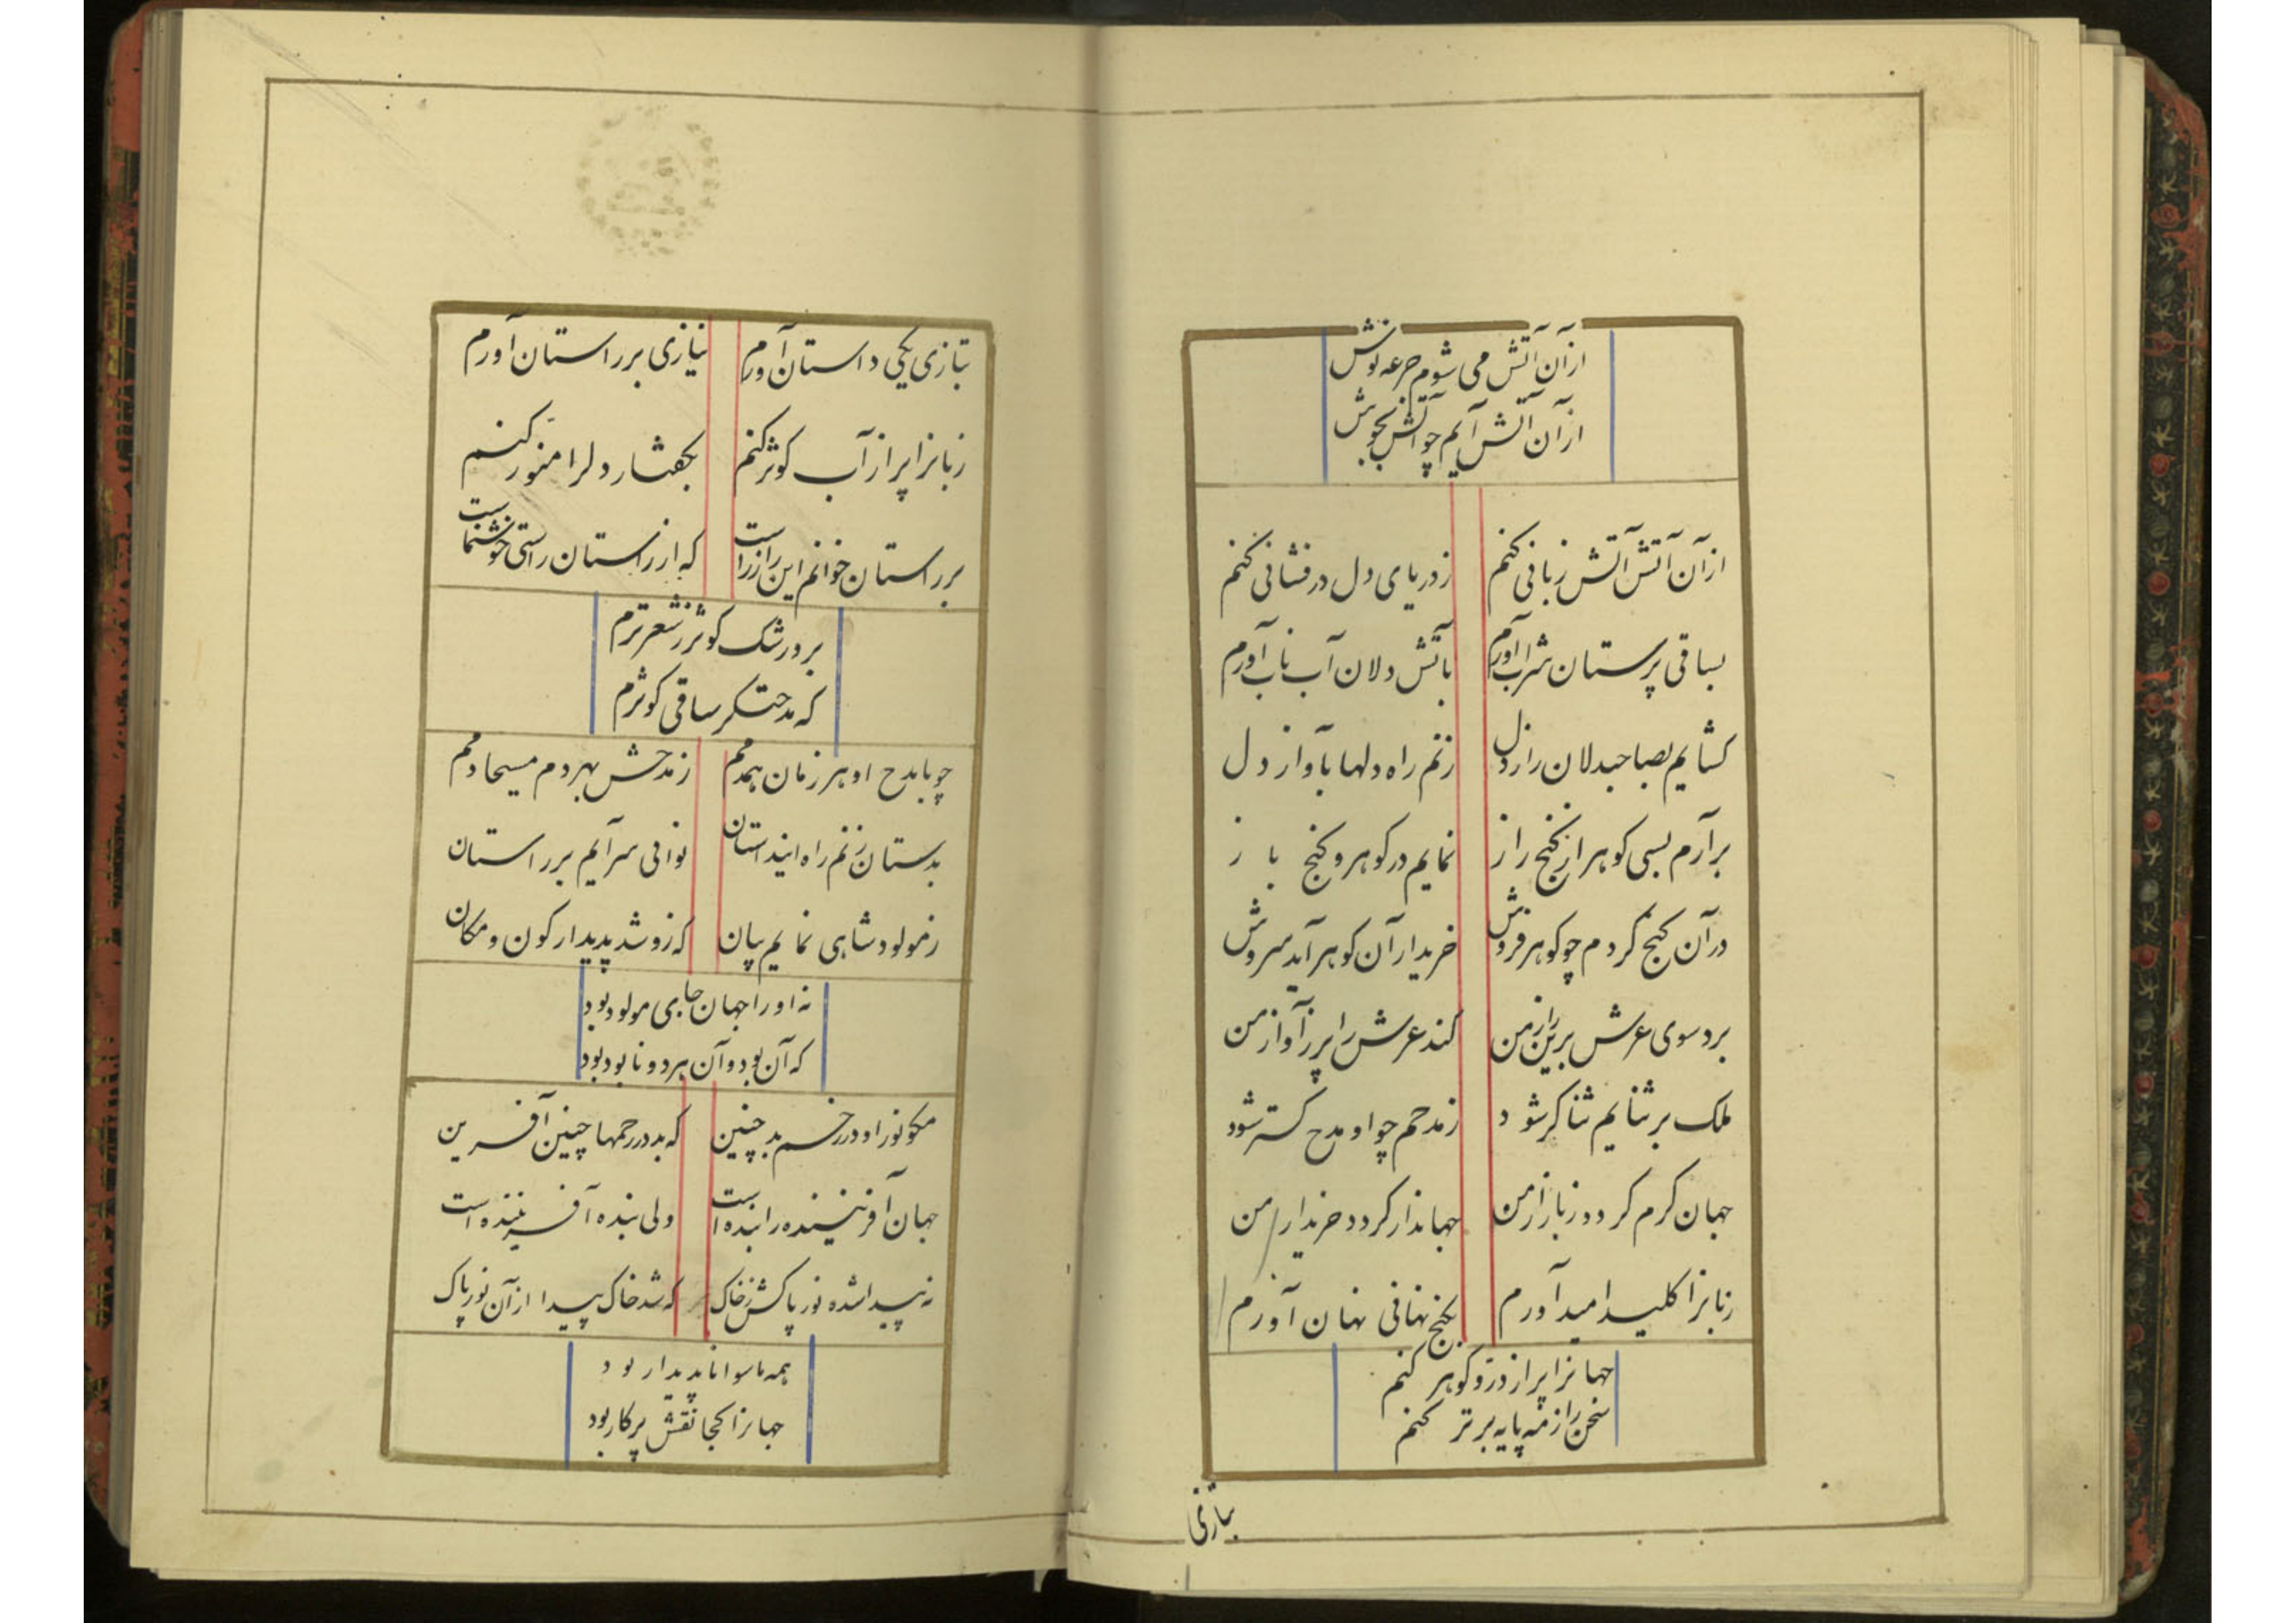 ازآن آتش می شوم جرعه نوش
ازآن آتش آیم چو آتش بجوش
ازآن آتش آتش زبانی کنم زدریای دل درفشانی کنم
بساقی پرستان شراب آورم بآتش دلان آب ناب آورم
کشایم بصاحبدلان راز دل زنم راه دلها بآواز دل
برآرم بسی کوهر از کنج راز نمایم در کوهر و کنج باز
درآن کنج کردم چو کوهرفروش خریدار آن کوهر آید سروش
برد سوی عرش برین راز من کند عرش را پر زآواز من
ملک بر ثنایم ثناکر شود زمدحم چو او مدح کستر شود
جهان کرم کردد زبازار من جهاندار کردد خریدار من
زبانرا کلید امید آورم بکنج نهانی نهان آورم
جهانرا پر از در و کوهر کنم
سخن را زمه پایه برتر کنم
بتازی
بتازی یکی داستان آورم نیازی بر راستان آورم
زبانرا پر از آب کوثر کنم بکفتار دلرا منور کنم
بر راستان خوانم این راز راست که از راستان راستی خوشنماست
برد رشک کوثر زشعر ترم
که مدحتکر ساقی کوثرم
چو با مدح او هر زمان همدمم زمدحش بهر دم مسیحا دمم
بدستان زنم راه اینداستان نوائی سرآیم بر راستان
زمولود شاهی نمایم بیان که زو شد پدیدار کون و مکان
نه او را جهان جای مولود بود
که آن بود و آن هر دو نابود بود
مکو نور او در رحم بد جنین که بد در رحمها جنین آفرین
جهان آفریننده را بنده است ولی بنده آفریننده است
نه پیدا شده نور پاکش زخاک که شد خاک پیدا ازآن نور پاک
همه ماسوا ناپدیدار بود
جهانرا کجا نقش پرکار بود